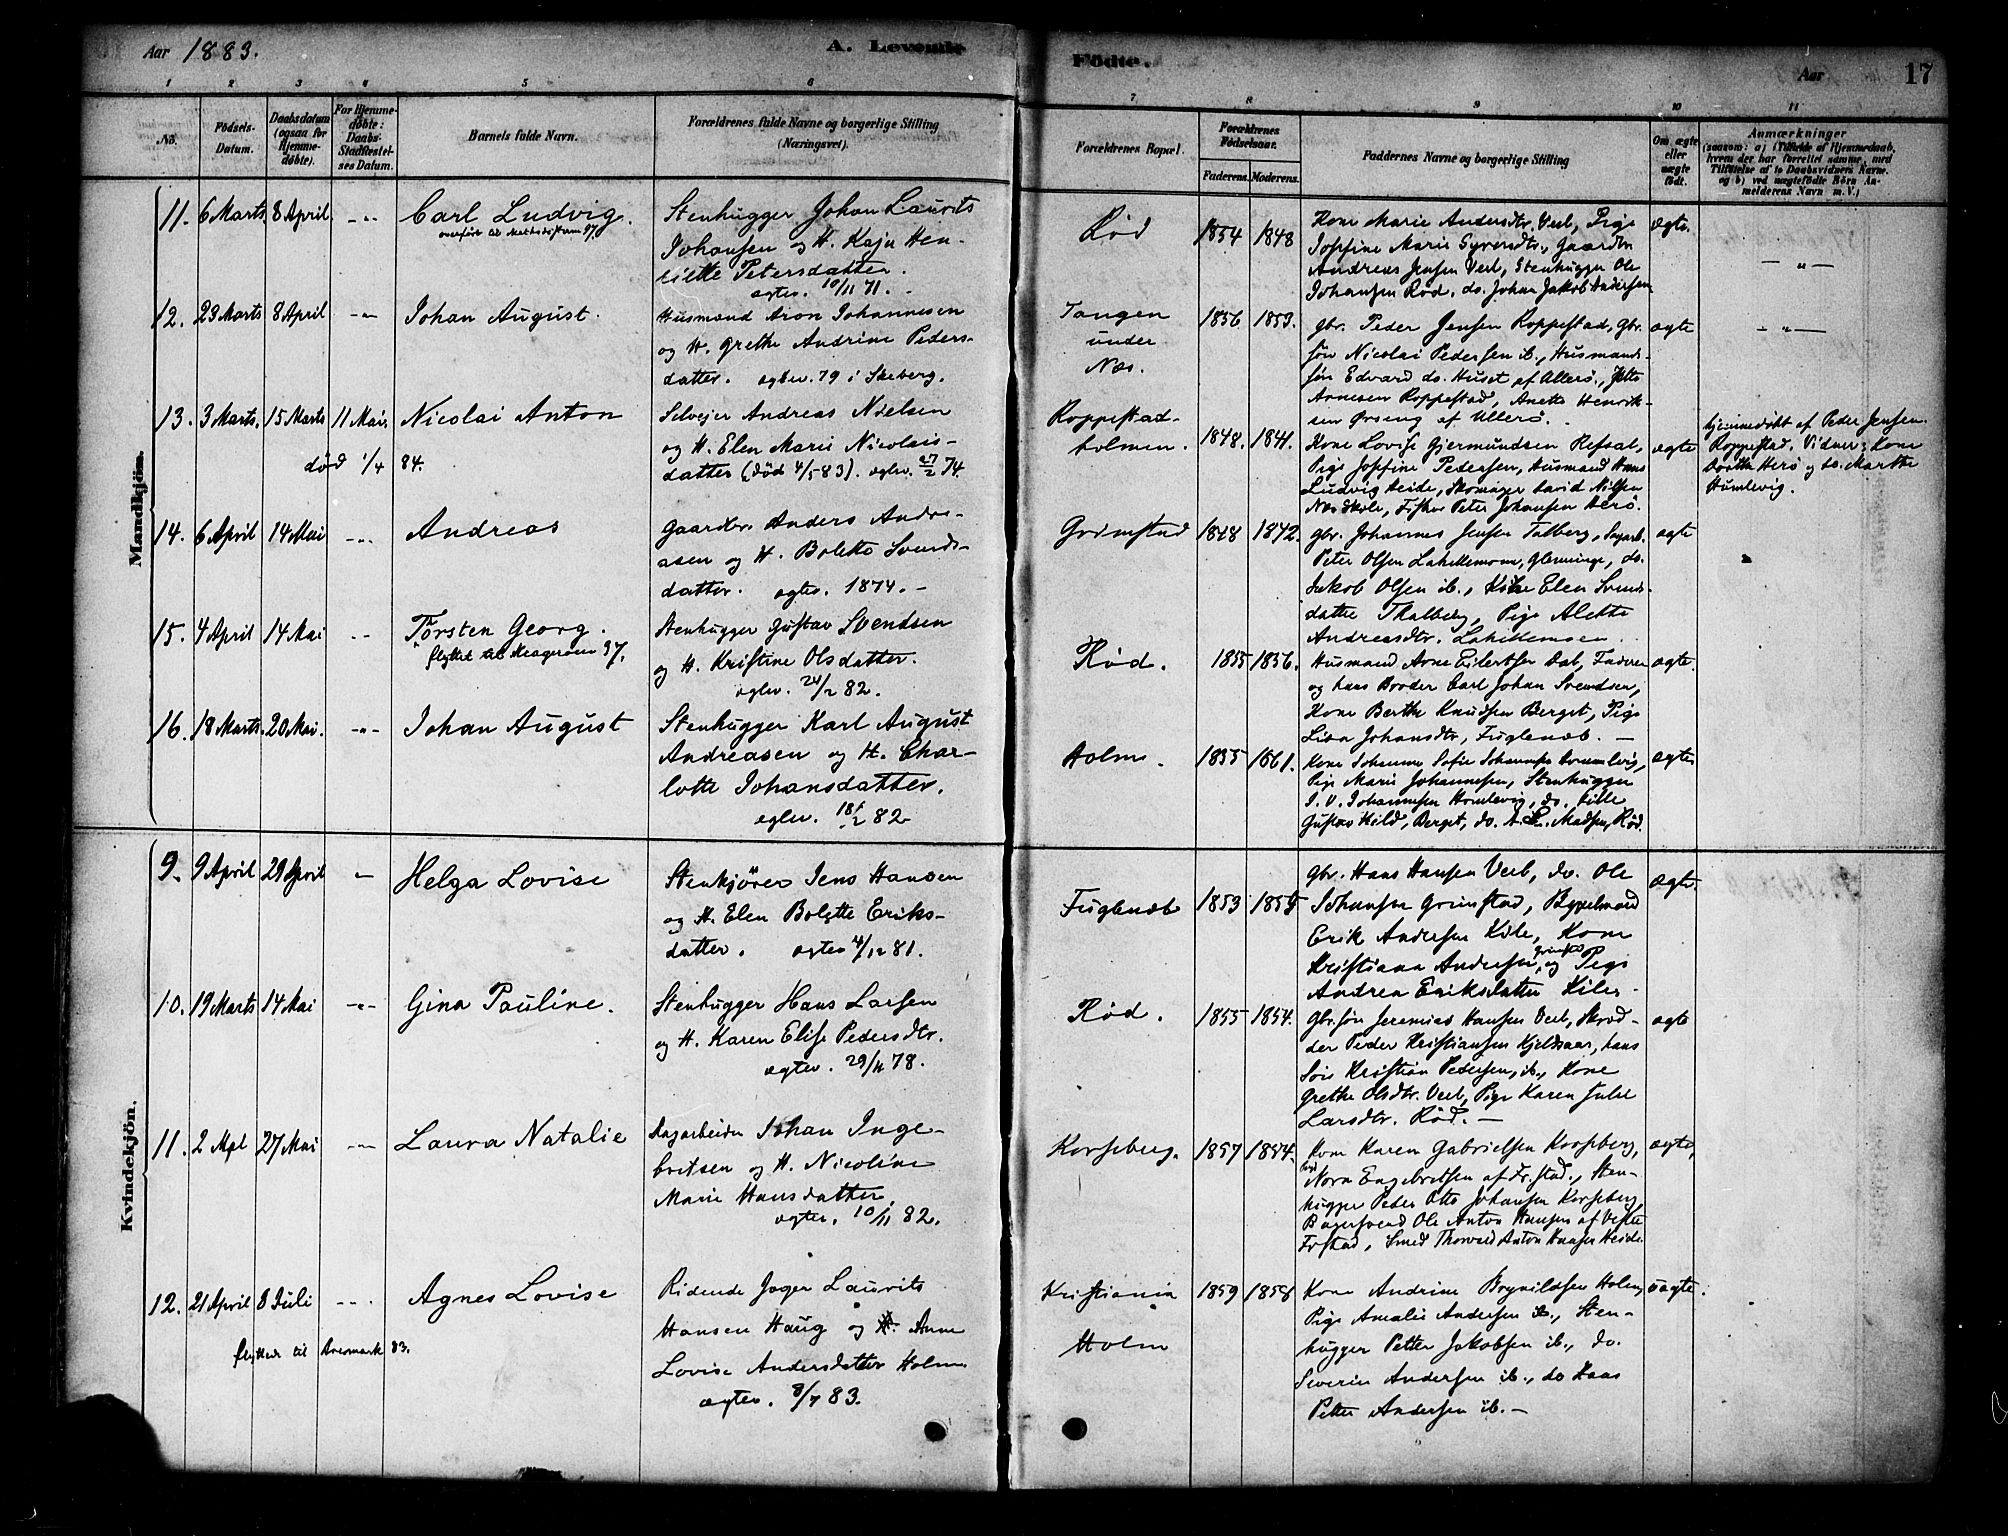 Aar 1883.
A. Levende
Födte.
Aar
17
1 2 3 4 5 6 7 8 9 10 11
No.
Födsels-
Datum.
Daabsdatum
(ogsaa for
Hjemme-
döbte).
For Hjemme-
döbte:
Daabs-
Stadfæstel-
ses Datum.
Barnets fulde Navn.
Forældrenes fulde Navne og borgerlige Stilling
(Næringsvei).
Forældrenes Bopæl.
Forældrenes
Födselsaar.
Faderens. Moderens.
Faddernes Navne og borgerlige Stilling
Om ægte
eller
uægte
født.
Anmærkninger
(saasom: a) (Tilfælde af Hjemmedaab,
hvem der har forrettet samme, med
Tilføielse af to Daabsvidners Navne.
og b) ved uægtefødte Börn An-
melderens Navn m. V.)
Mandkjön.
11. 6 Marts 8 April -"- Carl Ludvig.
overført til Methodistkm 97.
Stenhugger Johan Laurits
Johansen og H. Kaja Hen-
riette Petersdatter.
ægtev. 10/11 71. -
Rød 1854 1848
Kone Marie Andersdtr. Veel, Pige
Josefine Marie Syversdtr., Gaardbr.
Andreas Jensen Veel, Stenhugger Ole
Johansen Rød, do. Johan Jakob Andersen
ægte.
- " -
12. 23 Marts 8 April -"- Johan August.
Husmand Aron Johannesen
og H. Grethe Andrine Peders-
datter. ægtev. 79 i Skeberg.
Tangen
under
Næs.
1856 1853.
gbr. Peder Jensen Roppestad, gbr.
søn Nicolai Pedersen ib., Husmands-
søn Edvard do. Huset af Allerø,
Arnesen Roppestad, Anette Henrik-
sen Ørseng af Ullerø.
ægte
- " -
13. 3 Marts. 15 Marts 11 Mai. Nicolai Anton
død 1/4 84.
Selveier Andreas Nielsen
og H. Elen Marie Nicolais-
datter (død 4/5 83). ægtev. 27/2 74.
Roppestad-
holmen.
1848. 1841.
Kone Lovise Gjermundsen Refsal,
Pige Josefine Pedersen, Husmand Hans
Ludvig Heide, Skomager David Nilsen
Næs Skole, Fisker Peter Johansen Herø.
ægte
Hjemmedøbt af Peder Jensen
Roppestad. Vidner: Kone
Dorthe Herø og do. Marthe
Humlevig.
14. 6 April 14 Mai -"- Andreas
Gaardbr. Anders Andre-
asen og H. Bolette Svends-
datter. ægtev. 1874. -
Grimstad 1848 1842.
gbr. Johannes Jensen Talberg, Sagarb.
Peter Olsen Lahellemoen, Glemminge, do.
Jakob Olsen ib., Kone Elen Svends-
datter Thalberg, Pige Alette
Andreasdtr. Lahellemoen.
ægte
15. 4 April 14 Mai -"- Torsten Georg.
flyttet til Kragerøen 97.
Stenhugger Gustav Svendsen
og H. Kristine Olsdatter.
ægtev. 24/2 82.
Rød. 1855 1856.
Husmand Arne Eilertsen Dal, Faderen
og hans Broder Carl Johan Svendsen,
Kone Berthe Knudsen Berget, Pige
Lisa Johansdtr., Fuglenæb. -
ægte.
16. 18 Marts. 20 Mai. -"- Johan August
Stenhugger Karl August
Andreasen og H. Char-
lotte Johansdatter.
ægtev. 18/2 82
Holm. 1855 1861.
Kone Johanne Sofie Johannesen Homlevig,
Pige Marie Johannesen, Stenhugger
J. V. Johannesen Homlevig, do.
Gustav Kild, Berget, do. A. L. Madsen, Rød.
ægte
Kvindekjön.
9. 9 April 29 April -"- Helga Lovise
Stenkjører Jens Hansen
og H. Elen Bolette Eriks-
datter. ægtev 4/12 81.
Fuglenæb 1853 1855
gbr. Hans Hansen Veel, do. Ole
Johansen Grimstad, Bygselmand
Erik Andersen Kile, Kone
Kristiane Andersen, Grimstad og Pige
Andrea Eriksdatter Kile. -
ægte.
10. 19 Marts 14 Mai -"- Gina Pauline.
Stenhugger Hans Larsen
og H. Karen Elise Pedersdtr.
ægtev. 29/11 78.
Rød. 1855 1854.
Gbr.søn Jeremias Hansen Veel, Skræd-
der Peder Kristiansen Kjelsaas, hans
Søn Kristian Pedersen, ib., Kone
Grethe Olsdtr. Veel, Pige Karen Julie
Larsdtr. Rød. -
ægte
11. 2 Apl 27 Mai -"- Laura Natalie
Dagarbeider Johan Inge-
britsen og H. Nicoline
Marie Hansdatter.
ægtev. 10/11 82.
Korseberg. 1857 1854.
Kone Karen Gabrielsen Korseberg,
Pige Nora Engebretsen af Fr.stad., Sten-
hugger Peder Otto Johansen Korseberg,
Bagersvend Ole Anton Hansen af Vestre
Frstad, Smed Thorvald Anton Hansen Heide.
ægte,
12. 21 April 8 Juli -"- Agnes Lovise
flyttede til Aremark 83.
Ridende Jæger Laurits
Hansen Haug og H. Anne
Lovise Andersdatter Holm.
ægtev. 8/7 83.
Kristiania
Holm
1859 1858
Kone Andrine Brynildsen Holm,
Pige Amalie Andersen ib., Sten-
hugger Petter Jakobsen ib., do.
Severin Andersen ib., do Hans
Petter Andersen ib. -
uægte.